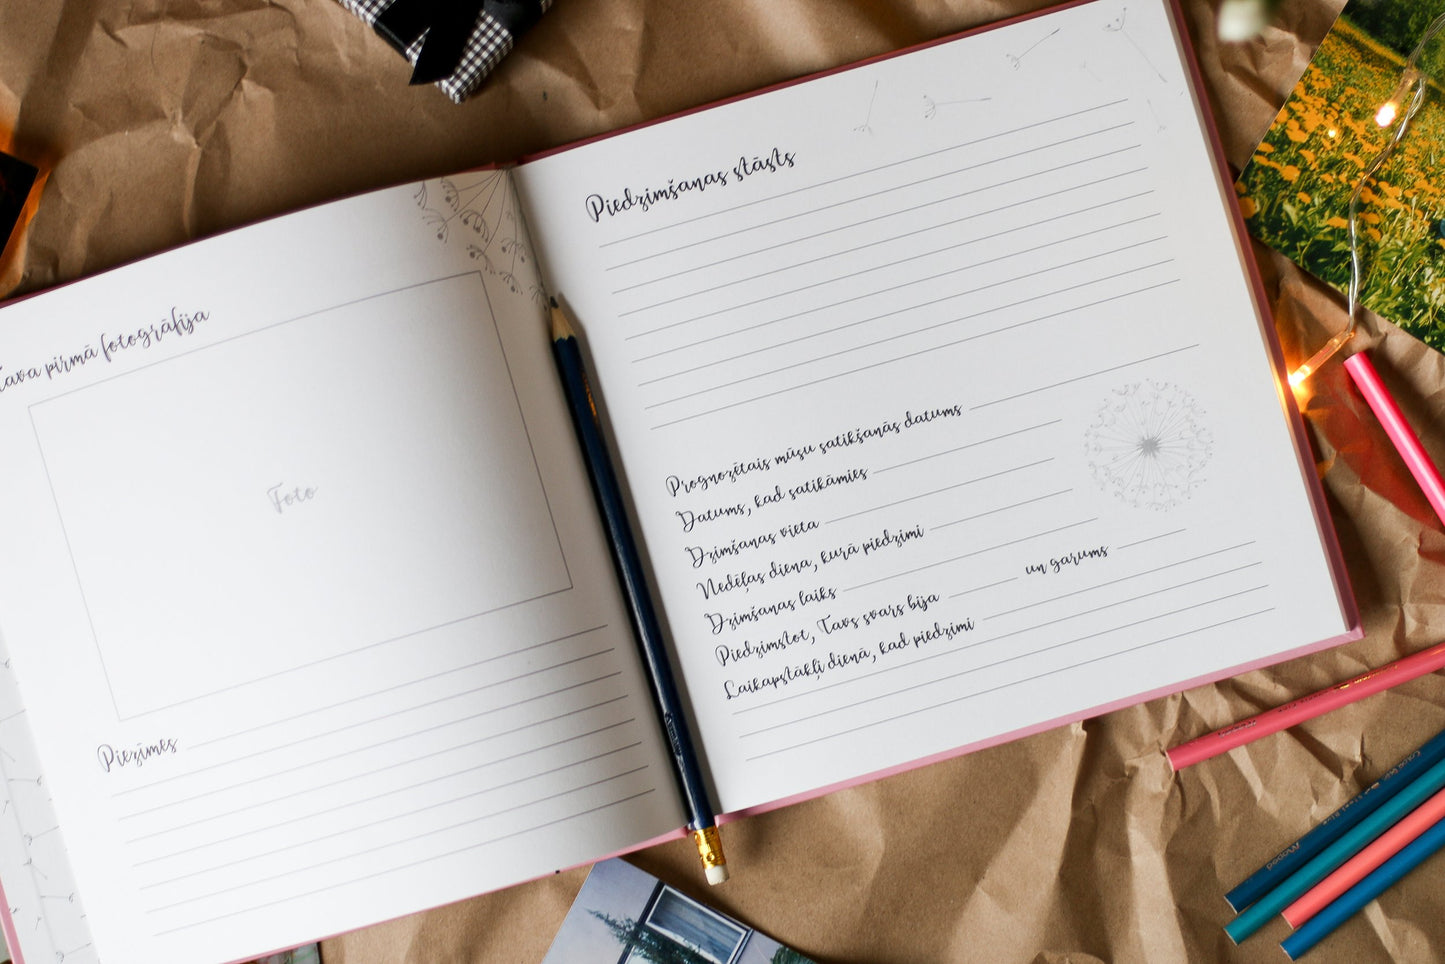 Tava pirmā fotogrāfija
Foto
Piezīmes
Piedzimšanas stāsts
Prognozētais mūsu satikšanās datums
Datums, kad satikāmies
Dzimšanas vieta
Nedēļas diena, kurā piedzimi
Dzimšanas laiks
Piedzimstot, Tavs svars bija un garums
Laikapstākļi dienā, kad piedzimi
Maped